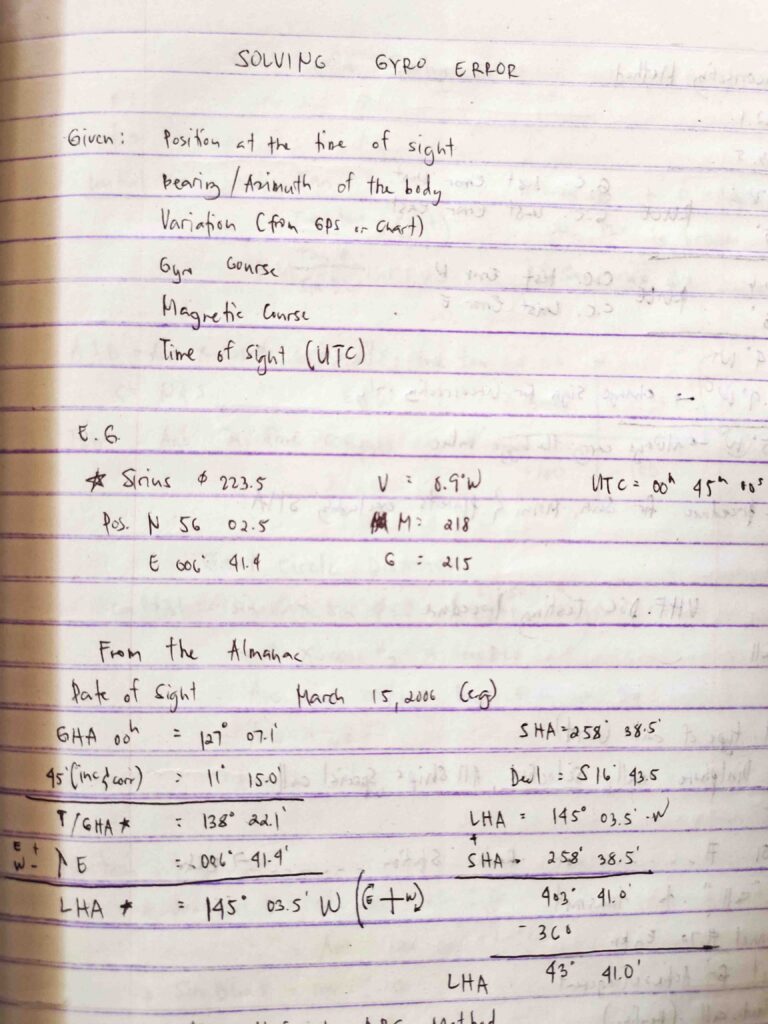 SOLVING GYRO ERROR
Given: Position at the time of sight
Bearing / Azimuth of the body
Variation (from GPS or Chart)
Gyro Course
Magnetic Course
Time of Sight (UTC)
E.G.
☆ Sirius ϕ 223.5 V = 0.9°W UTC = 00h 45m 00s
Pos. N 56 02.5 M = 218
E 006° 41.4 G = 215
From the Almanac
Date of Sight March 15, 2006 (eg)
GHA 00h = 127° 07.1' SHA = 258° 38.5'
45' (inc & corr) = 11° 15.0' Decl = S 16° 43.5
T/GHA ☆ = 138° 22.1' LHA = 145° 03.5' W
E + W - λ E = 006° 41.4' + SHA - 258° 38.5'
LHA ☆ = 145° 03.5' W (E + W) 403° 41.0'
- 360
LHA 43° 41.0'
ABC Method